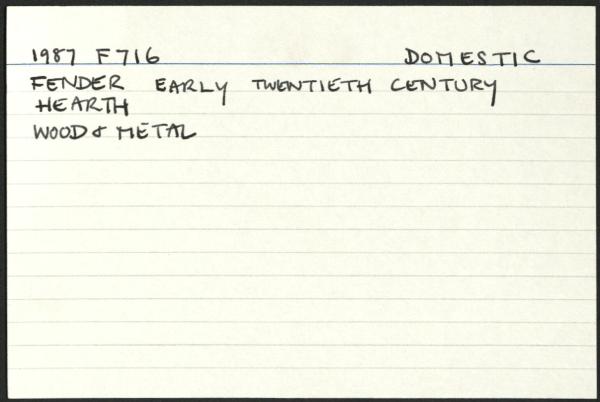 1987 F716 DOMESTIC
FENDER EARLY TWENTIETH CENTURY
HEARTH
WOOD & METAL